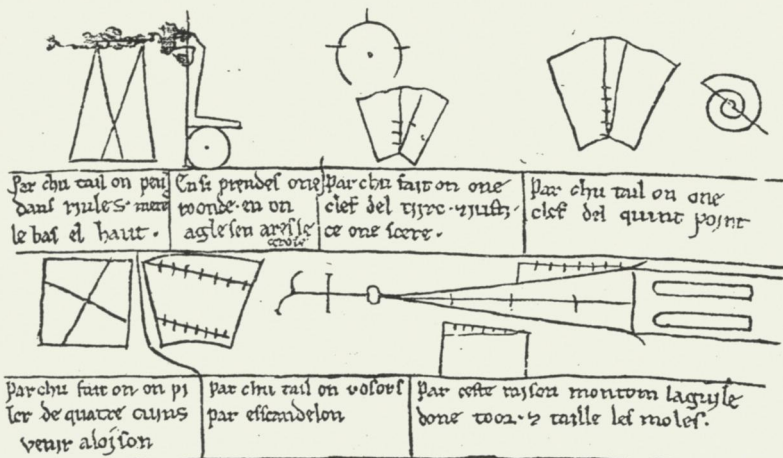 Par chu tail on
dans riules mete
le bas el haut.
Ensi prendes one
roonde en on
agle s en ares le
grose
Par chu fait on one
clef del tierc &
ce one scere.
Par chu tail on one
clef del quint point
Par chu fait on on pi
ler de quatre cuins
venir a loison
Par chu tail on vosors
par esscandelon
Par ceste raison montom la guile
done toor & taille les moles.